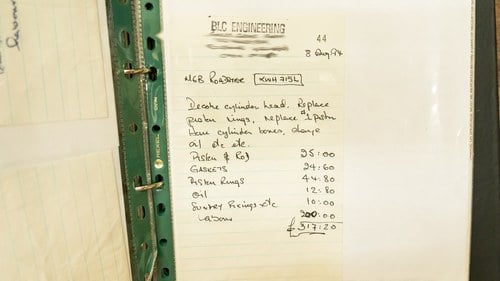 BLC ENGINEERING
44
8 Aug 94
MGB Roadster KWH 715L
Decoke cylinder head. Replace
piston rings, replace 1 piston
Hone cylinder bores, change
oil etc etc.
Piston & Rod 25:00
GASKETS 24:60
Piston Rings 44:80
Oil 12:80
Sundry Fixings etc 10:00
Labour 200:00
£317:20